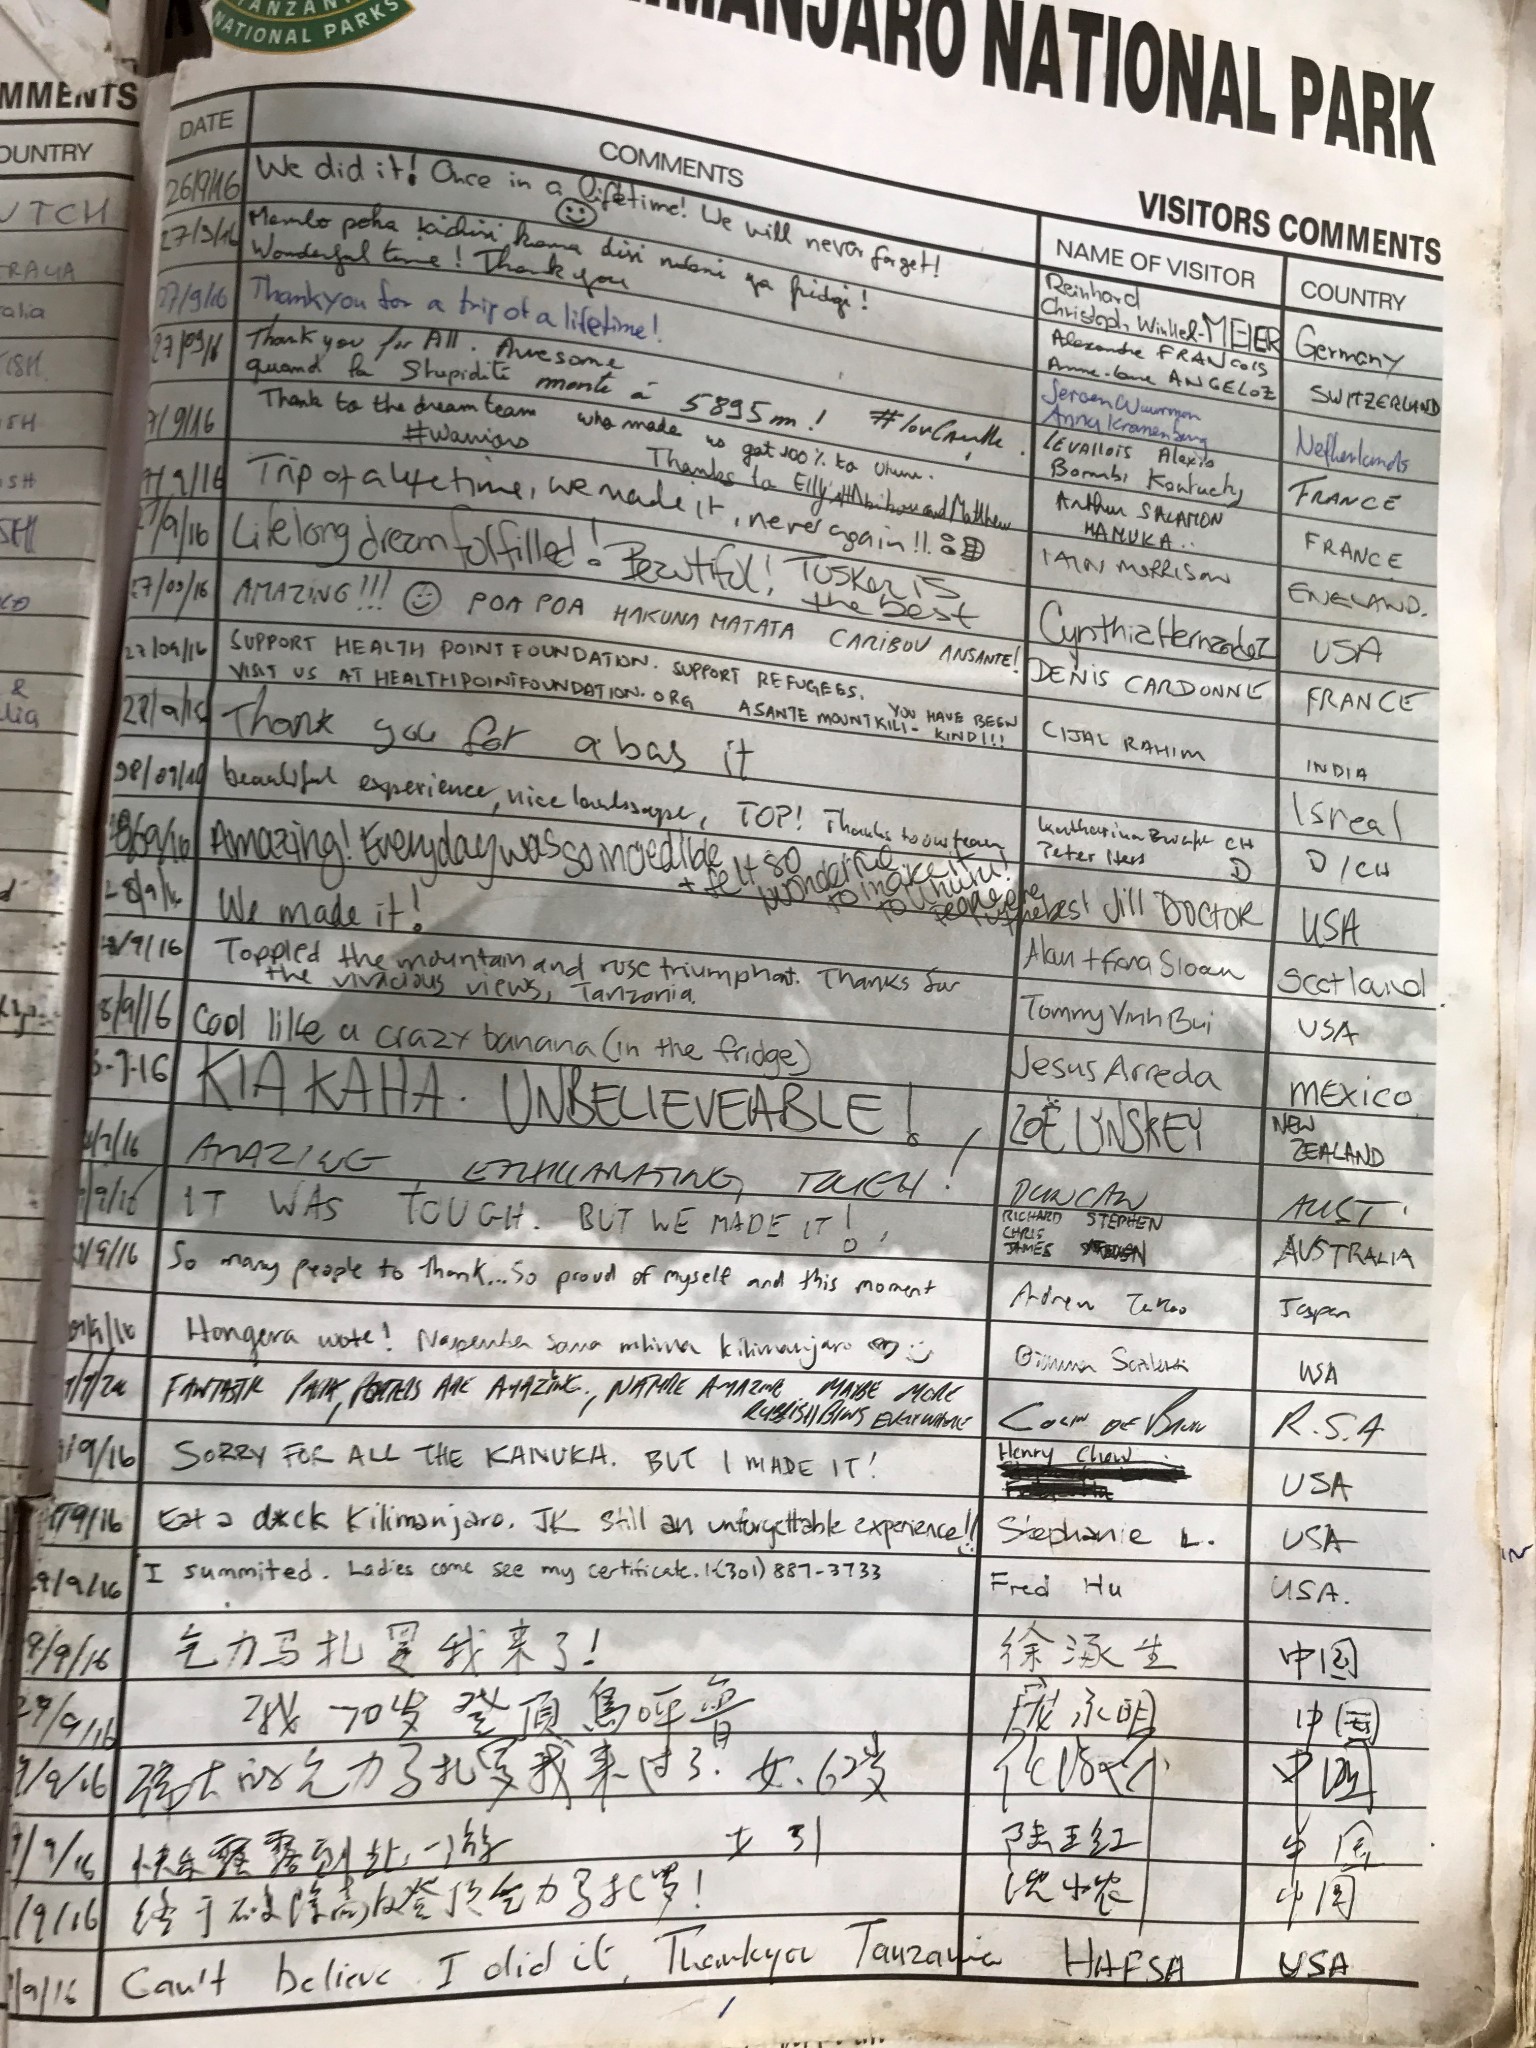 TANZANIA
NATIONAL PARKS
KILIMANJARO NATIONAL PARK
VISITORS COMMENTS
MMENTS
OUNTRY
DATE COMMENTS NAME OF VISITOR COUNTRY
26/9/16 We did it! Once in a lifetime! We will never forget! Reinhard Christoph Winkel-MEIER Germany
27/9/16 Mambo poha kichizi kama disi ndani ya fridgi!
Wonderful time! Thank you Alexandre FRANCOIS
Anne-Lane ANGELOZ SWITZERLAND
27/9/16 Thankyou for a trip of a lifetime! Jeroen Wuurman
Anna Kranenburg Netherlands
27/09/16 Thank you for All. Awesome
quand la Stupidité monte à 5895m! LEVALLOIS Alexis
Bombi Kentucky FRANCE
7/9/16 Thank to the dream team who made us get 100% to Uhuru.
#Warriors Thanks to Elly and Matthew Arthur SALAMON
HANUKA.. FRANCE
7/9/16 Trip of a lifetime, we made it, never again!!. IAIN MORRISON ENGLAND.
27/9/16 Lifelong dream fulfilled! Beautiful! Tusker is
the best Cynthia Hernandez USA
27/09/16 AMAZING!!! POA POA HAKUNA MATATA CARIBOU ANSANTE! DENIS CARDONNE FRANCE
27/09/16 SUPPORT HEALTH POINT FOUNDATION. SUPPORT REFUGEES.
VISIT US AT HEALTHPOINTFOUNDATION.ORG ASANTE MOUNT KILI- YOU HAVE BEEN KIND!!! CIJAL RAHIM INDIA
28/9/16 Thank you for a bas it Isreal
28/09/16 beautiful experience, nice landscape, TOP! Thanks to our team CH
Peter D D/CH
28/09/16 Amazing! Everyday was so incredible
+ felt so wonderful to make it to Uhuru! People are the best Jill DOCTOR USA
28/9/16 We made it! Alan + Fiona Sloan Scotland.
28/9/16 Toppled the mountain and rose triumphant. Thanks for
the vivacious views, Tanzania. Tommy Vinh Bui USA
8/9/16 Cool like a crazy banana (in the fridge) Jesus Arreda MEXICO
KIA KAHA. UNBELIEVEABLE! ZOË LYNSKEY NEW
ZEALAND
AMAZING EXHILARATING, TOUGH! DUNCAN AUST.
IT WAS TOUGH. BUT WE MADE IT! RICHARD STEPHEN
CHRIS
JAMES AUSTRALIA
/9/16 So many people to thank...So proud of myself and this moment Andrew Japan
Hongera wote! Nasepenba sana mlima Kilimanjaro USA
FANTASTIC PARK, PORTERS ARE AMAZING, NATURE AMAZING. MAYBE MORE
RUBBISH BINS EVERYWHERE Colin de R.S.A
/9/16 SORRY FOR ALL THE KANUKA. BUT I MADE IT! Henry Chow USA
/9/16 Eat a d*ck Kilimanjaro. JK still an unforgettable experience!! Stephanie L. USA
29/9/16 I summited. Ladies come see my certificate. 1(301) 887-3733 Fred Hu USA.
9/9/16 乞力马扎罗我来了! 徐涿生 中国
29/9/16 我70岁登頂烏呼魯 永明 中国
9/9/16 强大的乞力马扎罗我来过了. 女.62岁 中国
9/9/16 到此一游 陆玉红 中国
/9/16 终于登顶乞力马扎罗! 沈小农 中国
9/9/16 Can't believe I did it, Thankyou Tanzania HAFSA USA